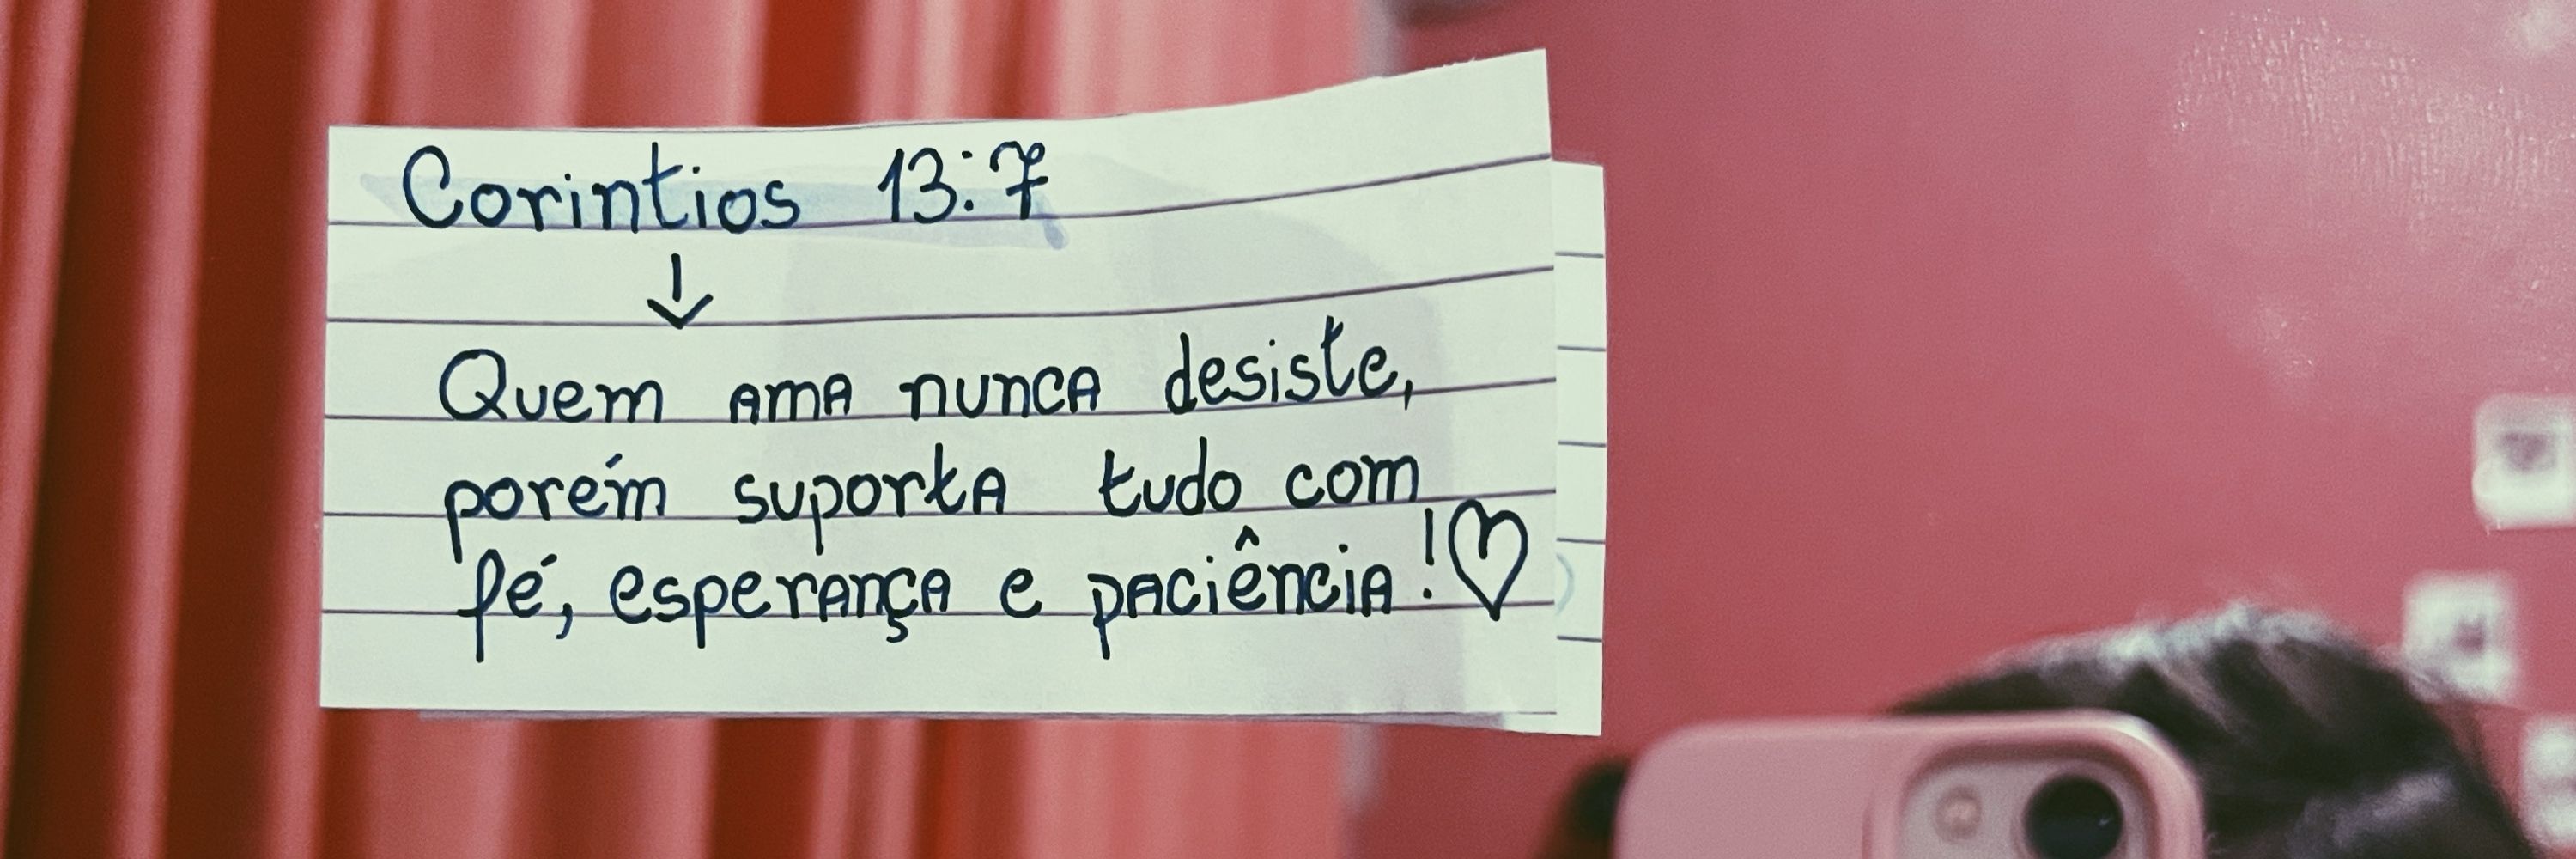 Corintios 13:7
↓
Quem ama nunca desiste,
porém suporta tudo com
fé, esperança e paciência!♡